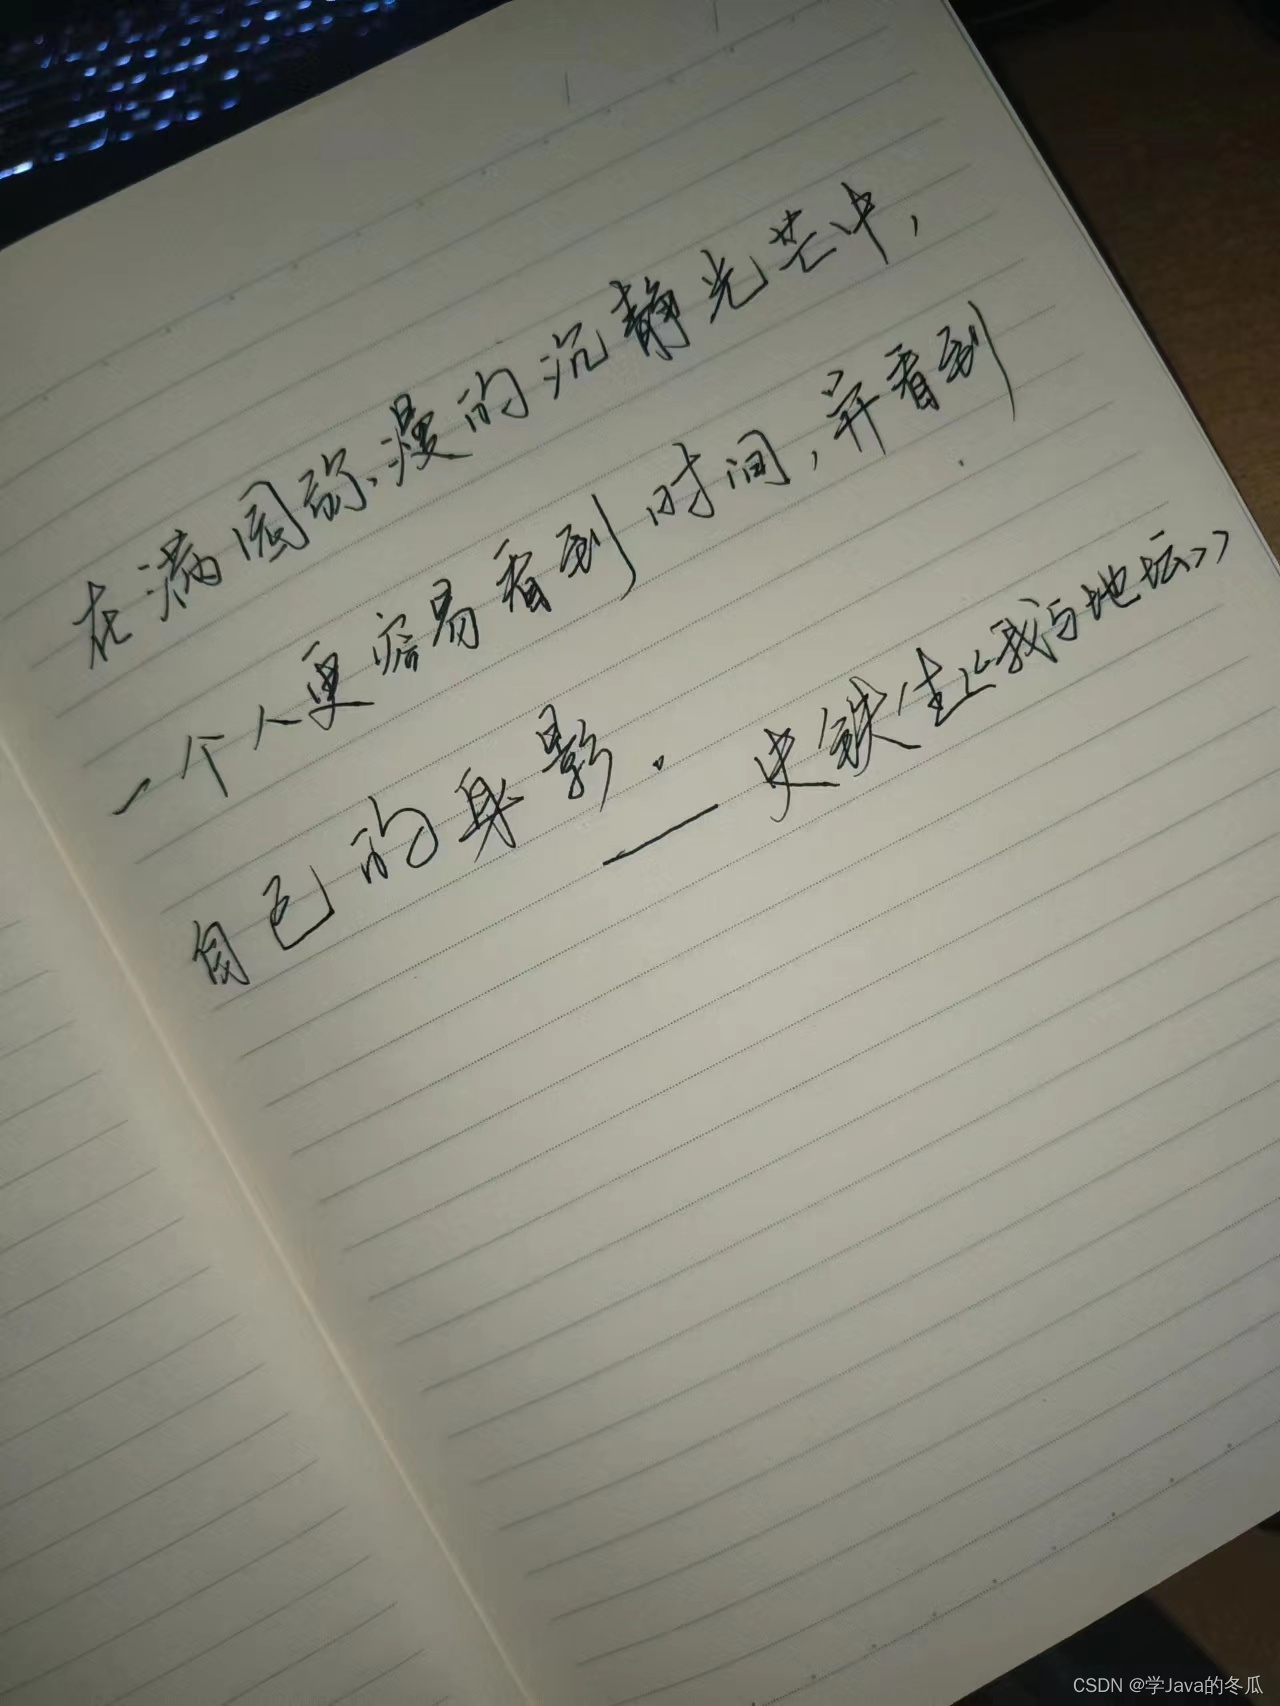 在满园弥漫的沉静光芒中，
一个人更容易看到时间，并看到
自己的身影.
——史铁生《我与地坛》
CSDN @学Java的冬瓜